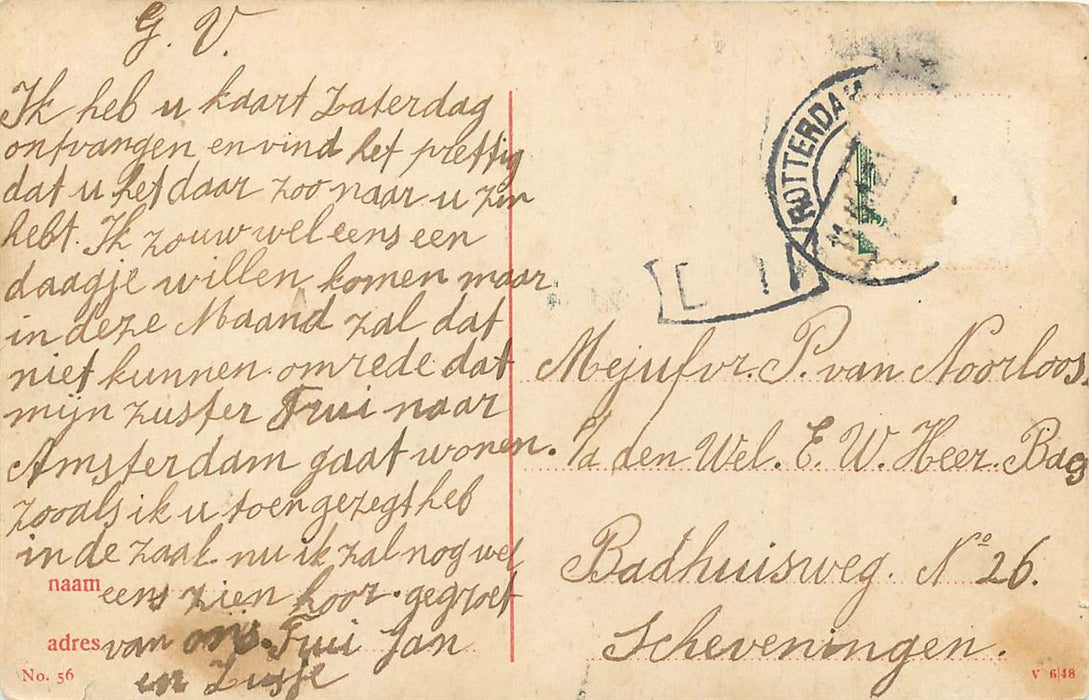 G. V.
Ik heb u kaart Zaterdag
ontvangen en vind het prettig
dat u het daar zoo naar u zin
hebt. Ik zouw wel eens een
daagje willen komen maar
in deze Maand zal dat
niet kunnen omrede dat
mijn zuster Trui naar
Amsterdam gaat wonen.
zooals ik u toen gezegt heb
in de zaal. nu ik zal nog wel
naam eens zien hoor. gegroet
adres van ons. Trui Jan
en Zusje
No. 56
ROTTERDAM
Mejufvr. P. van Noorloos.
1/a den Wel. E. W. Heer. Bas
Badhuisweg. No 26.
Scheveningen.
V 6|18